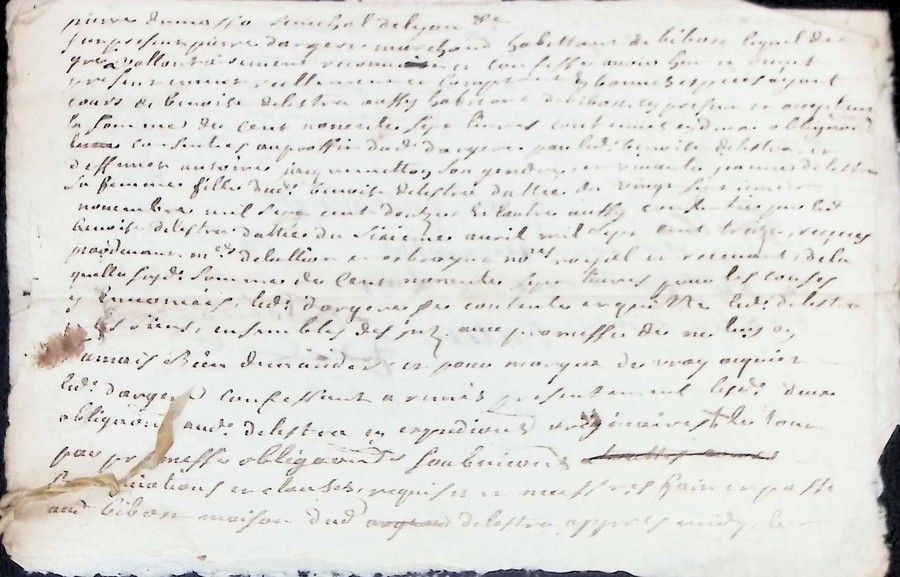 pierre dumasso senechal delyon &c
fut present pierre dargere marchand habittant de bibost lequel de
gre vollontairement et confesse avoir heu et receu
presentement reellement et comptant en bonnes especes ayant
cours de benoist delestra aussy habitant dudbibost cy present et acceptant
la somme de cent nonente sept livres contenues en deux obligaons
consenties au proffit dud dargere par led benoist delestra et
deffunct antoine son gendre, et vivante jeanne delestra
sa femme fille dud benoist delestra dattee du vingt sixieme
novembre mil sept cent douze et lautre aussy consentie par led
benoist delestra dattée du sixieme avril mil sept cent treize, receues
pardevant me no.res royal et de la
quelle susd somme de cent nonente sept livres pour les causes
y enoncées, led dargere se contente et quitte led delestra
et les siens, ensembles des avec promesse de ne luy en
jamais Rien demander et pour marque de vray acquict
led dargere confessant a remis presentement lesd deux
obligaons aud delestra en expeditions originaires le tout
par promesse obligaons soubmissions
renonciations et clauses, requises et necess.res fait et passé
aud bibost maison dud delestra appres midy, le